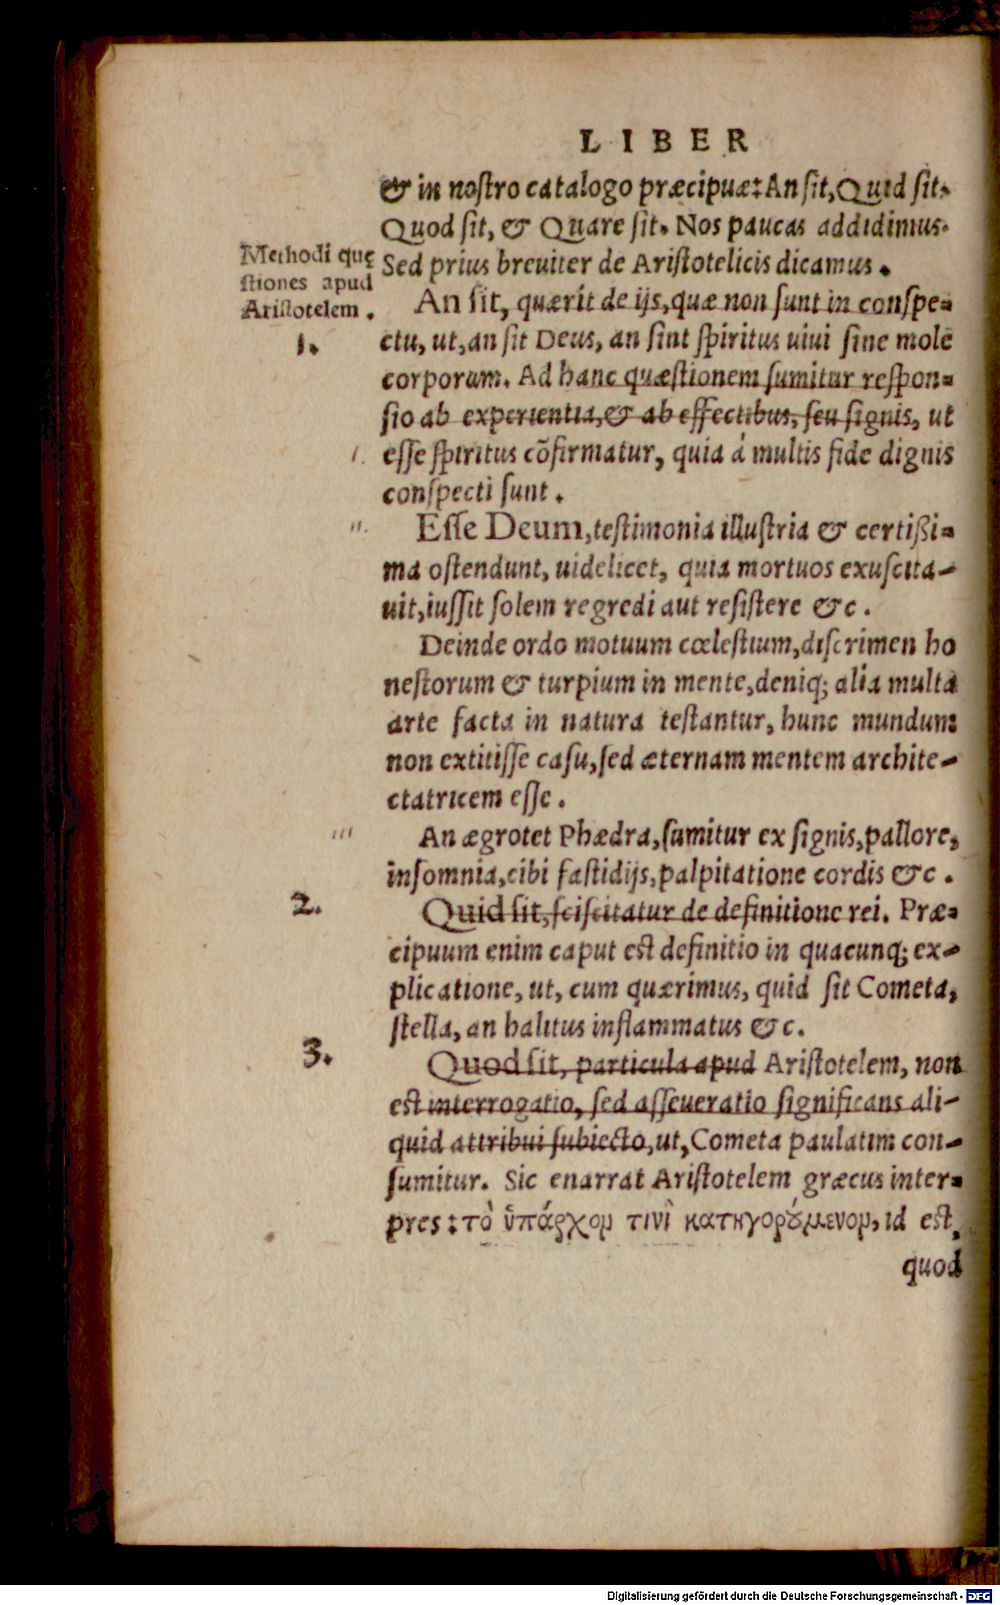 LIBER
& in nostro catalogo præcipuæ: An sit, Quid sit.
Quod sit, & Quare sit. Nos paucas addidimus.
Sed prius breuiter de Aristotelicis dicamus.
Methodi quę
stiones apud
Aristotelem.
1.
An sit, quærit de ijs, quæ non sunt in conspe-
ctu, ut, an sit Deus, an sint spiritus uiui sine mole
corporum. Ad hanc quæstionem sumitur respon-
sio ab experientia, & ab effectibus, seu signis, ut
esse spiritus cõfirmatur, quia á multis fide dignis
conspecti sunt.
I.
II.
Esse Deum, testimonia illustria & certißi-
ma ostendunt, uidelicet, quia mortuos exuscita-
uit, iussit solem regredi aut resistere &c.
Deinde ordo motuum cœlestium, discrimen ho
nestorum & turpium in mente, deniq; alia multa
arte facta in natura testantur, hunc mundum
non extitisse casu, sed æternam mentem archite-
ctatricem esse.
III
An ægrotet Phædra, sumitur ex signis, pallore,
insomnia, cibi fastidijs, palpitatione cordis &c.
2.
Quid sit, sciscitatur de definitione rei. Præ-
cipuum enim caput est definitio in quacunq; ex-
plicatione, ut, cum quærimus, quid sit Cometa,
stella, an halitus inflammatus &c.
3.
Quod sit, particula apud Aristotelem, non
est interrogatio, sed asseueratio significans ali-
quid attribui subiecto, ut, Cometa paulatim con-
sumitur. Sic enarrat Aristotelem græcus inter-
pres: τὸ ὑπάρχον τινὶ κατηγορούμενον, id est,
quod
Digitalisierung gefördert durch die Deutsche Forschungsgemeinschaft - DFG